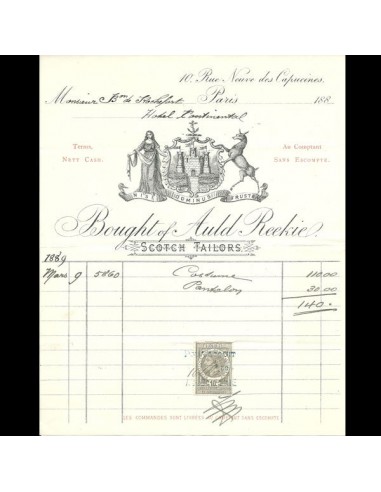 10. Rue Neuve des Capucines.
Monsieur Bon de Rochefort Paris 188
Hotel Continental
Terms, Au Comptant
Nett Cash. Sans Escompte.
NISI DOMINUS FRUSTRA
Bought of Auld Reekie
SCOTCH TAILORS
1889
Mars 9 5860 Costume 110.00
Pantalon 30.00
140.-
LES COMMANDES SONT LIVRÉES AU COMPTANT SANS ESCOMPTE